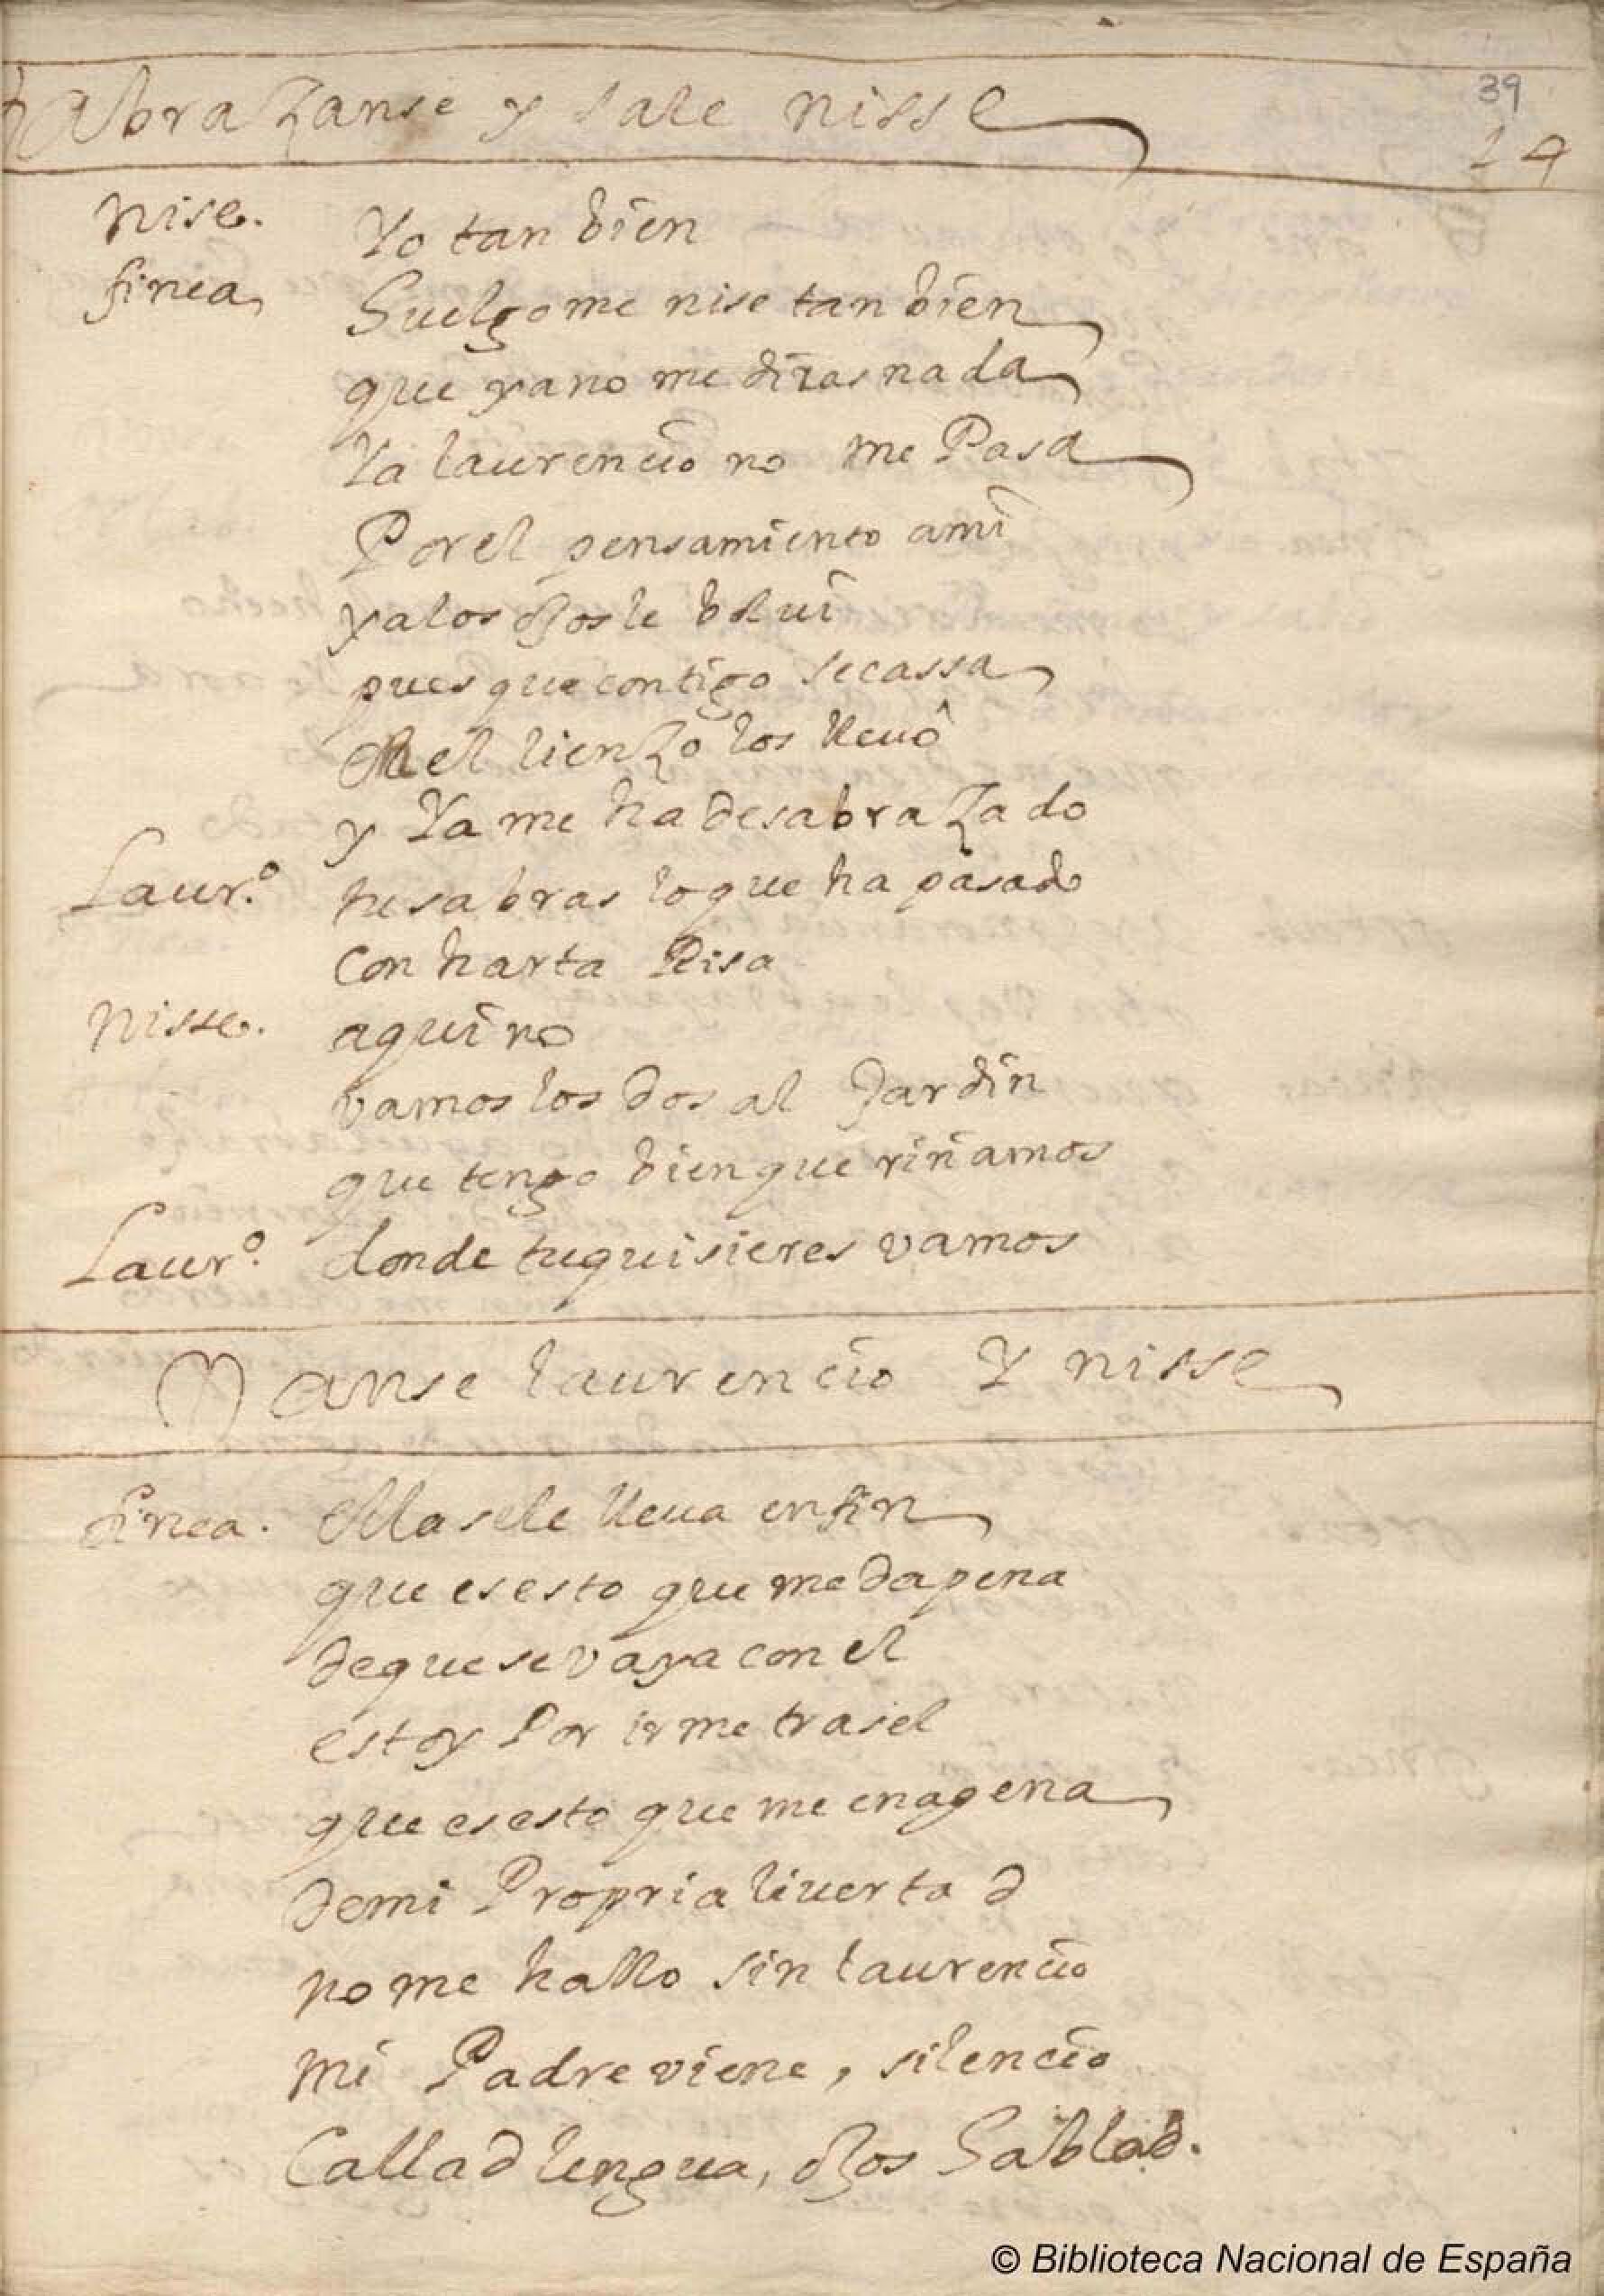 39
Abrazanse y sale nisse
24
Nise. Yo tan bien
finea Guelgome nise tan bien
que ya no me diras nada
Ya laurencio no me Pasa
Por el pensamiento a mi
ya los ojos le bolui
pues que contigo se cassa
en el lienzo los lleuô
y Ya me ha desabrazado
Laur.º tu sabras lo que ha pasado
con harta Risa
Nisse. aqui no
vamos los dos al Jardin
que tengo bien que riñamos
Laurº. donde tu quisieres vamos
Vanse laurencio Y nisse
finea. Ella se le lleua en fin
que es esto que me da pena
de que se vaya con el
estoy Por irme tras el
que es esto que me enagena
de mi Propria liuertad
no me hallo sin laurencio
mi Padre viene, silencio
Callad lengua, ojos hablad.
© Biblioteca Nacional de España